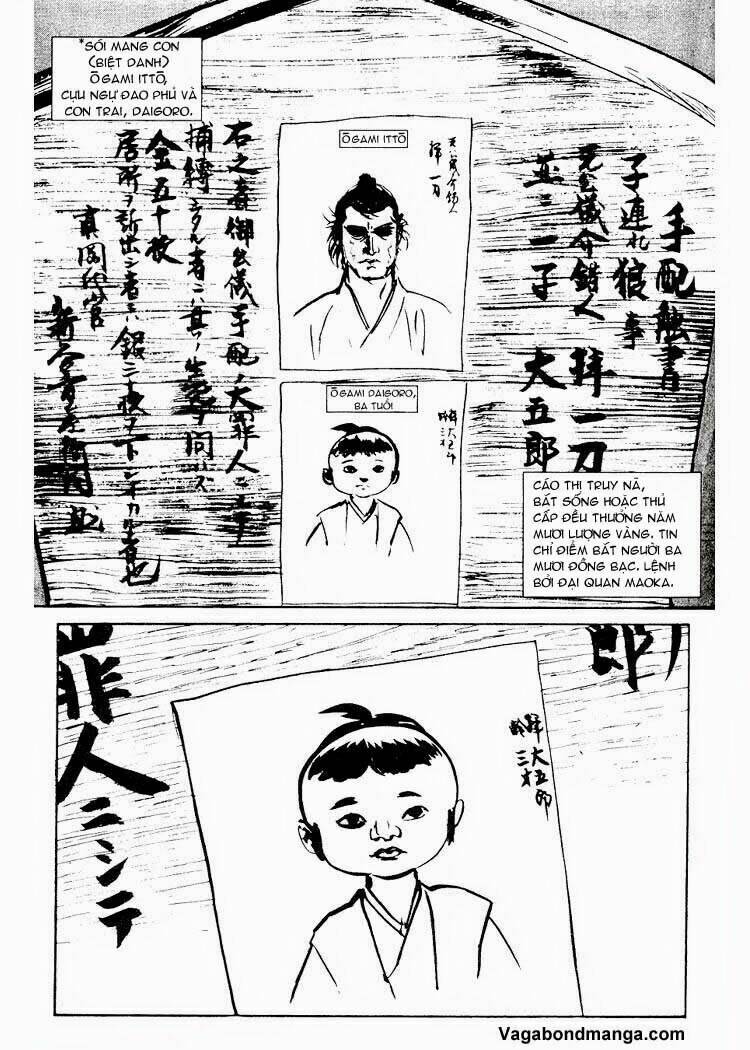 *SÓI MANG CON
(BIỆT DANH)
ŌGAMI ITTŌ,
CỰU NGỰ ĐAO PHỦ VÀ
CON TRAI, DAIGORO.
手配触書
子連れ狼事
元公儀介錯人 拝一刀
並ニ一子 大五郎
ŌGAMI ITTŌ
元公儀介錯人
拝一刀
ŌGAMI DAIGORO,
BA TUỔI
拝大五郎
齢三才
右之者御公儀手配ノ大罪人ニシテ
捕縛シタル者ニハ其ノ生死ヲ問ハズ
金五十枚
居所ヲ訴出シ者ニハ銀三十枚ヲ下シオカル者也
真岡代官
CÁO THỊ TRUY NÃ,
BẮT SỐNG HOẶC THỦ
CẤP ĐỀU THƯỞNG NĂM
MƯƠI LƯỢNG VÀNG. TIN
CHỈ ĐIỂM BẮT NGƯỜI BA
MƯƠI ĐỒNG BẠC. LỆNH
BỞI ĐẠI QUAN MAOKA.
郎
拝大五郎
齢三才
罪人ニシテ
Vagabondmanga.com